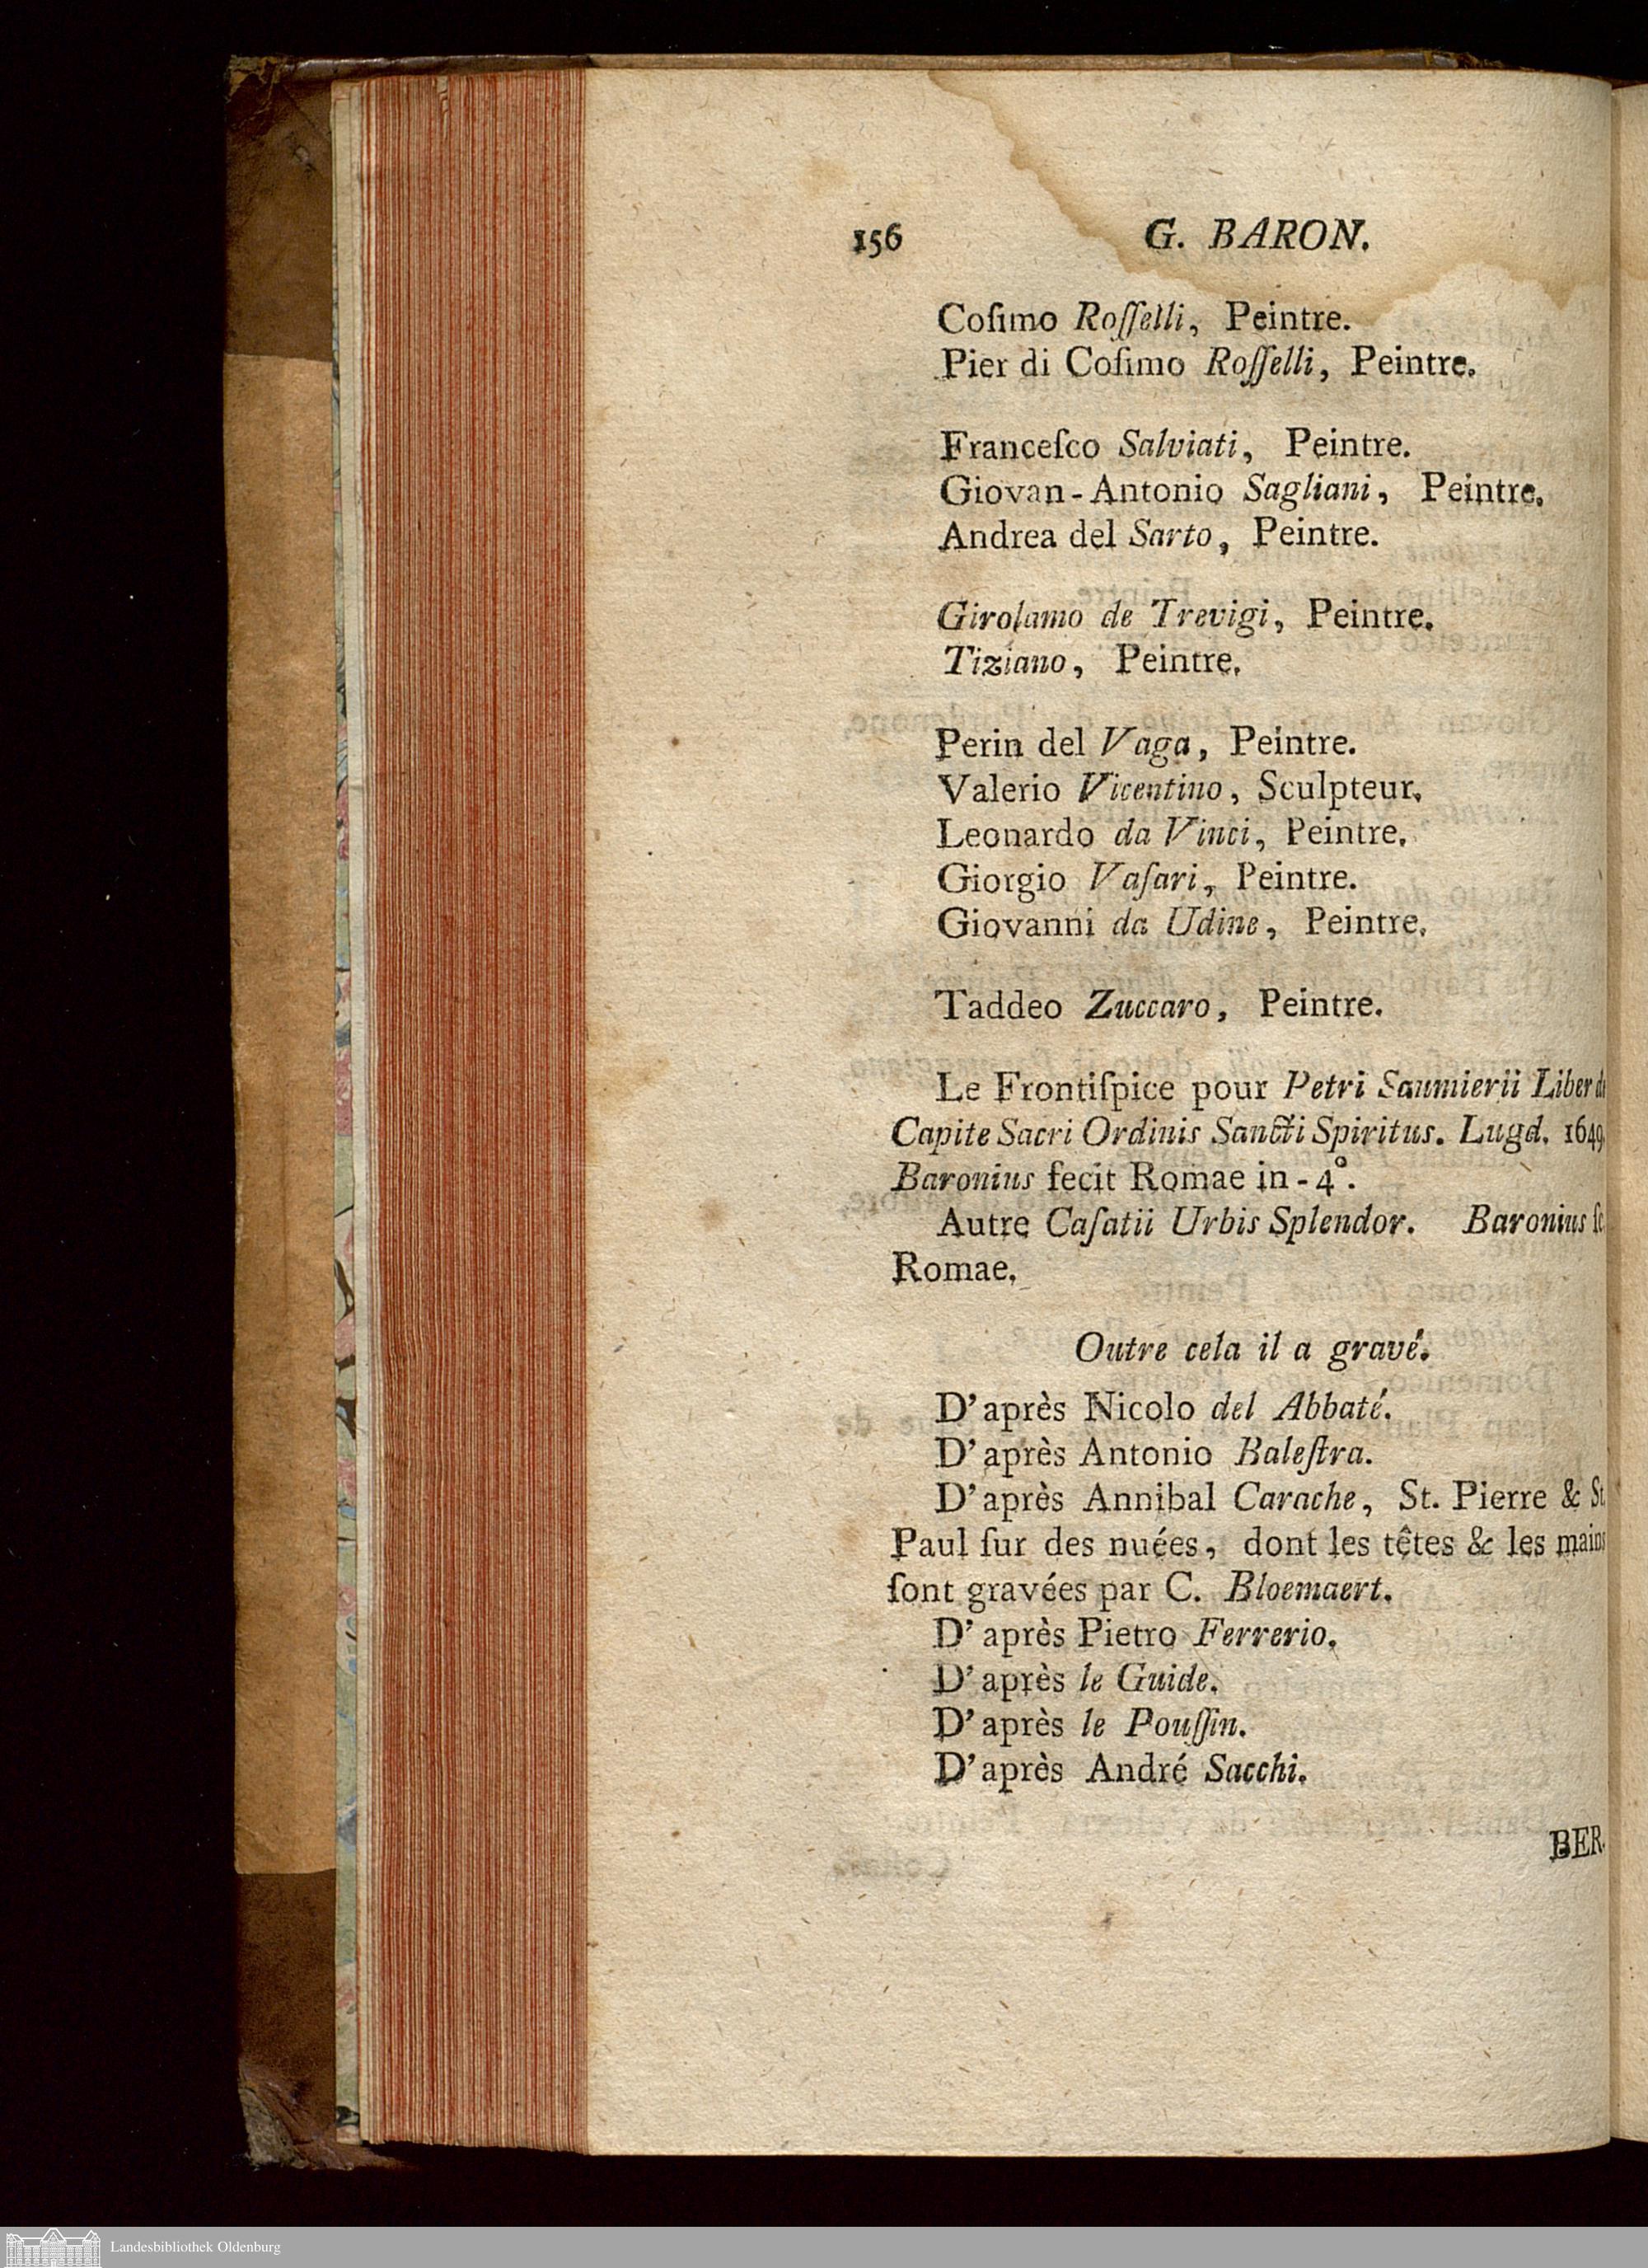 156 G. BARON.
Coſimo Roſſelli, Peintre.
Pier di Coſimo Roſſelli, Peintre.
Franceſco Salviati, Peintre.
Giovan-Antonio Sagliani, Peintre.
Andrea del Sarto, Peintre.
Girolamo de Trevigi, Peintre.
Tiziano, Peintre.
Perin del Vaga, Peintre.
Valerio Vicentino, Sculpteur.
Leonardo da Vinci, Peintre.
Giorgio Vaſari, Peintre.
Giovanni da Udine, Peintre.
Taddeo Zuccaro, Peintre.
Le Frontiſpice pour Petri Saumierii Liber de
Capite Sacri Ordinis Sancti Spiritus. Lugd. 1649.
Baronius fecit Romae in-4°.
Autre Caſatii Urbis Splendor. Baronius ſc.
Romae.
Outre cela il a gravé.
D'après Nicolo del Abbaté.
D'après Antonio Baleſtra.
D'après Annibal Carache, St. Pierre & St.
Paul ſur des nuées, dont les têtes & les mains
ſont gravées par C. Bloemaert.
D'après Pietro Ferrerio.
D'après le Guide.
D'après le Pouſſin.
D'après André Sacchi.
BER-
Landesbibliothek Oldenburg